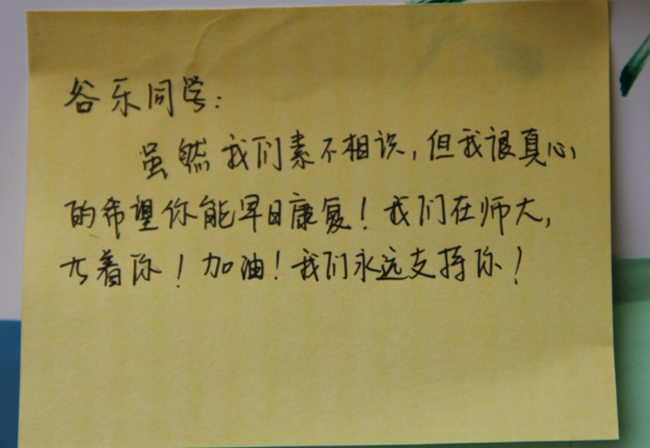 谷乐同学:
虽然我们素不相识,但我很真心
的希望你能早日康复!我们在师大,
着你!加油!我们永远支持你!